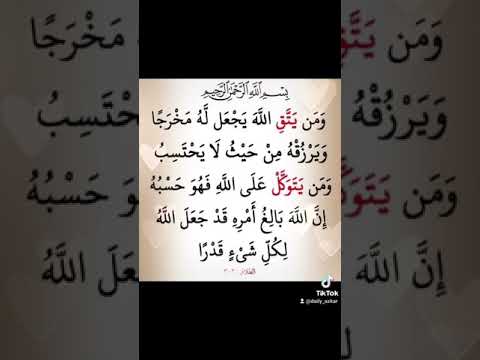 بِسْمِ اللَّهِ الرَّحْمَٰنِ الرَّحِيمِ
وَمَن يَتَّقِ اللَّهَ يَجْعَل لَّهُ مَخْرَجًا
وَيَرْزُقْهُ مِنْ حَيْثُ لَا يَحْتَسِبُ
وَمَن يَتَوَكَّلْ عَلَى اللَّهِ فَهُوَ حَسْبُهُ
إِنَّ اللَّهَ بَالِغُ أَمْرِهِ قَدْ جَعَلَ اللَّهُ
لِكُلِّ شَىْءٍ قَدْرًا
الطلاق
TikTok
@daily_azkar